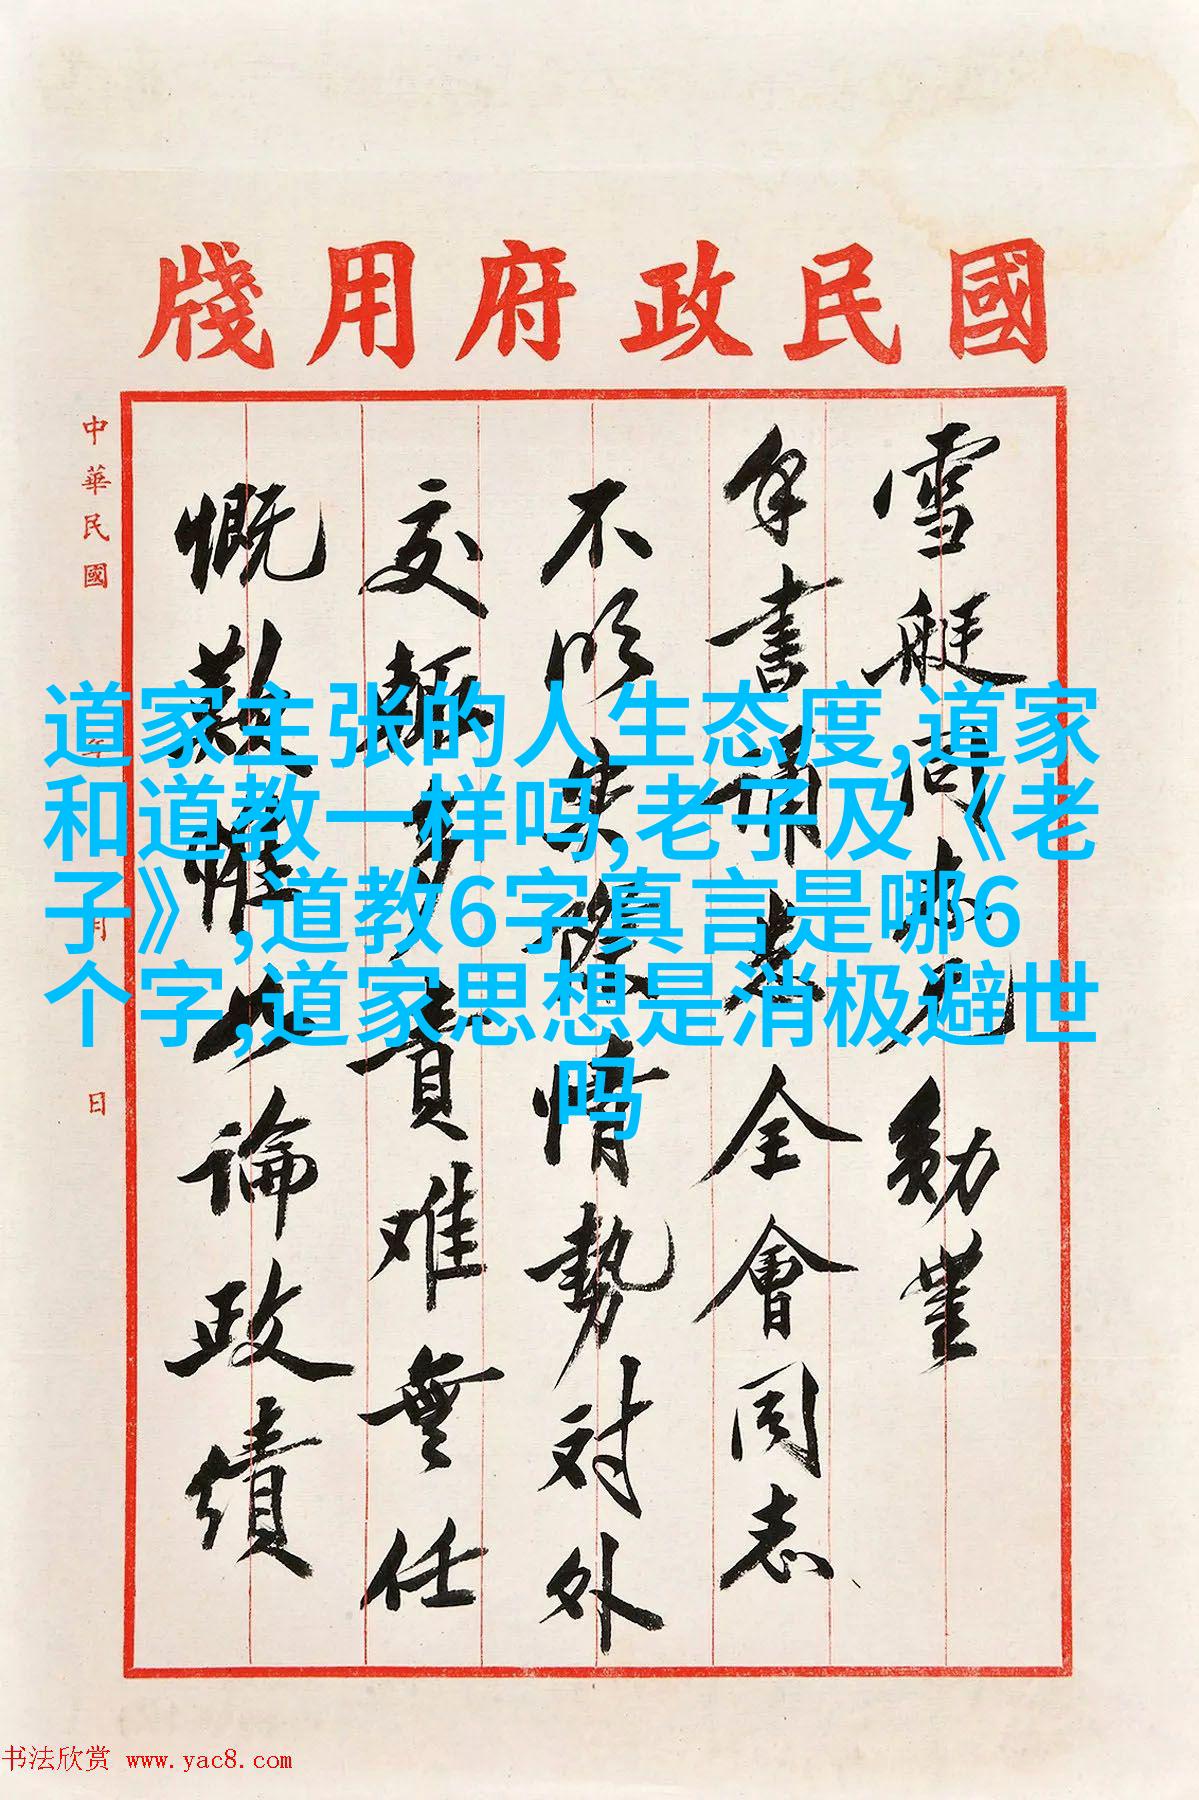 國民政府用牋
中華民國 年 月 日
雪艇同志兄勛豐
手書誦悉全會同志
不明實際情勢对外
交輒多責难無任
慨歎惟以論政績
道家主张的人生态度,道家
和道教一样吗,老子及《老
子》,道教6字真言是哪6
个字,道家思想是消极避世
吗
书法欣赏 www.yac8.com